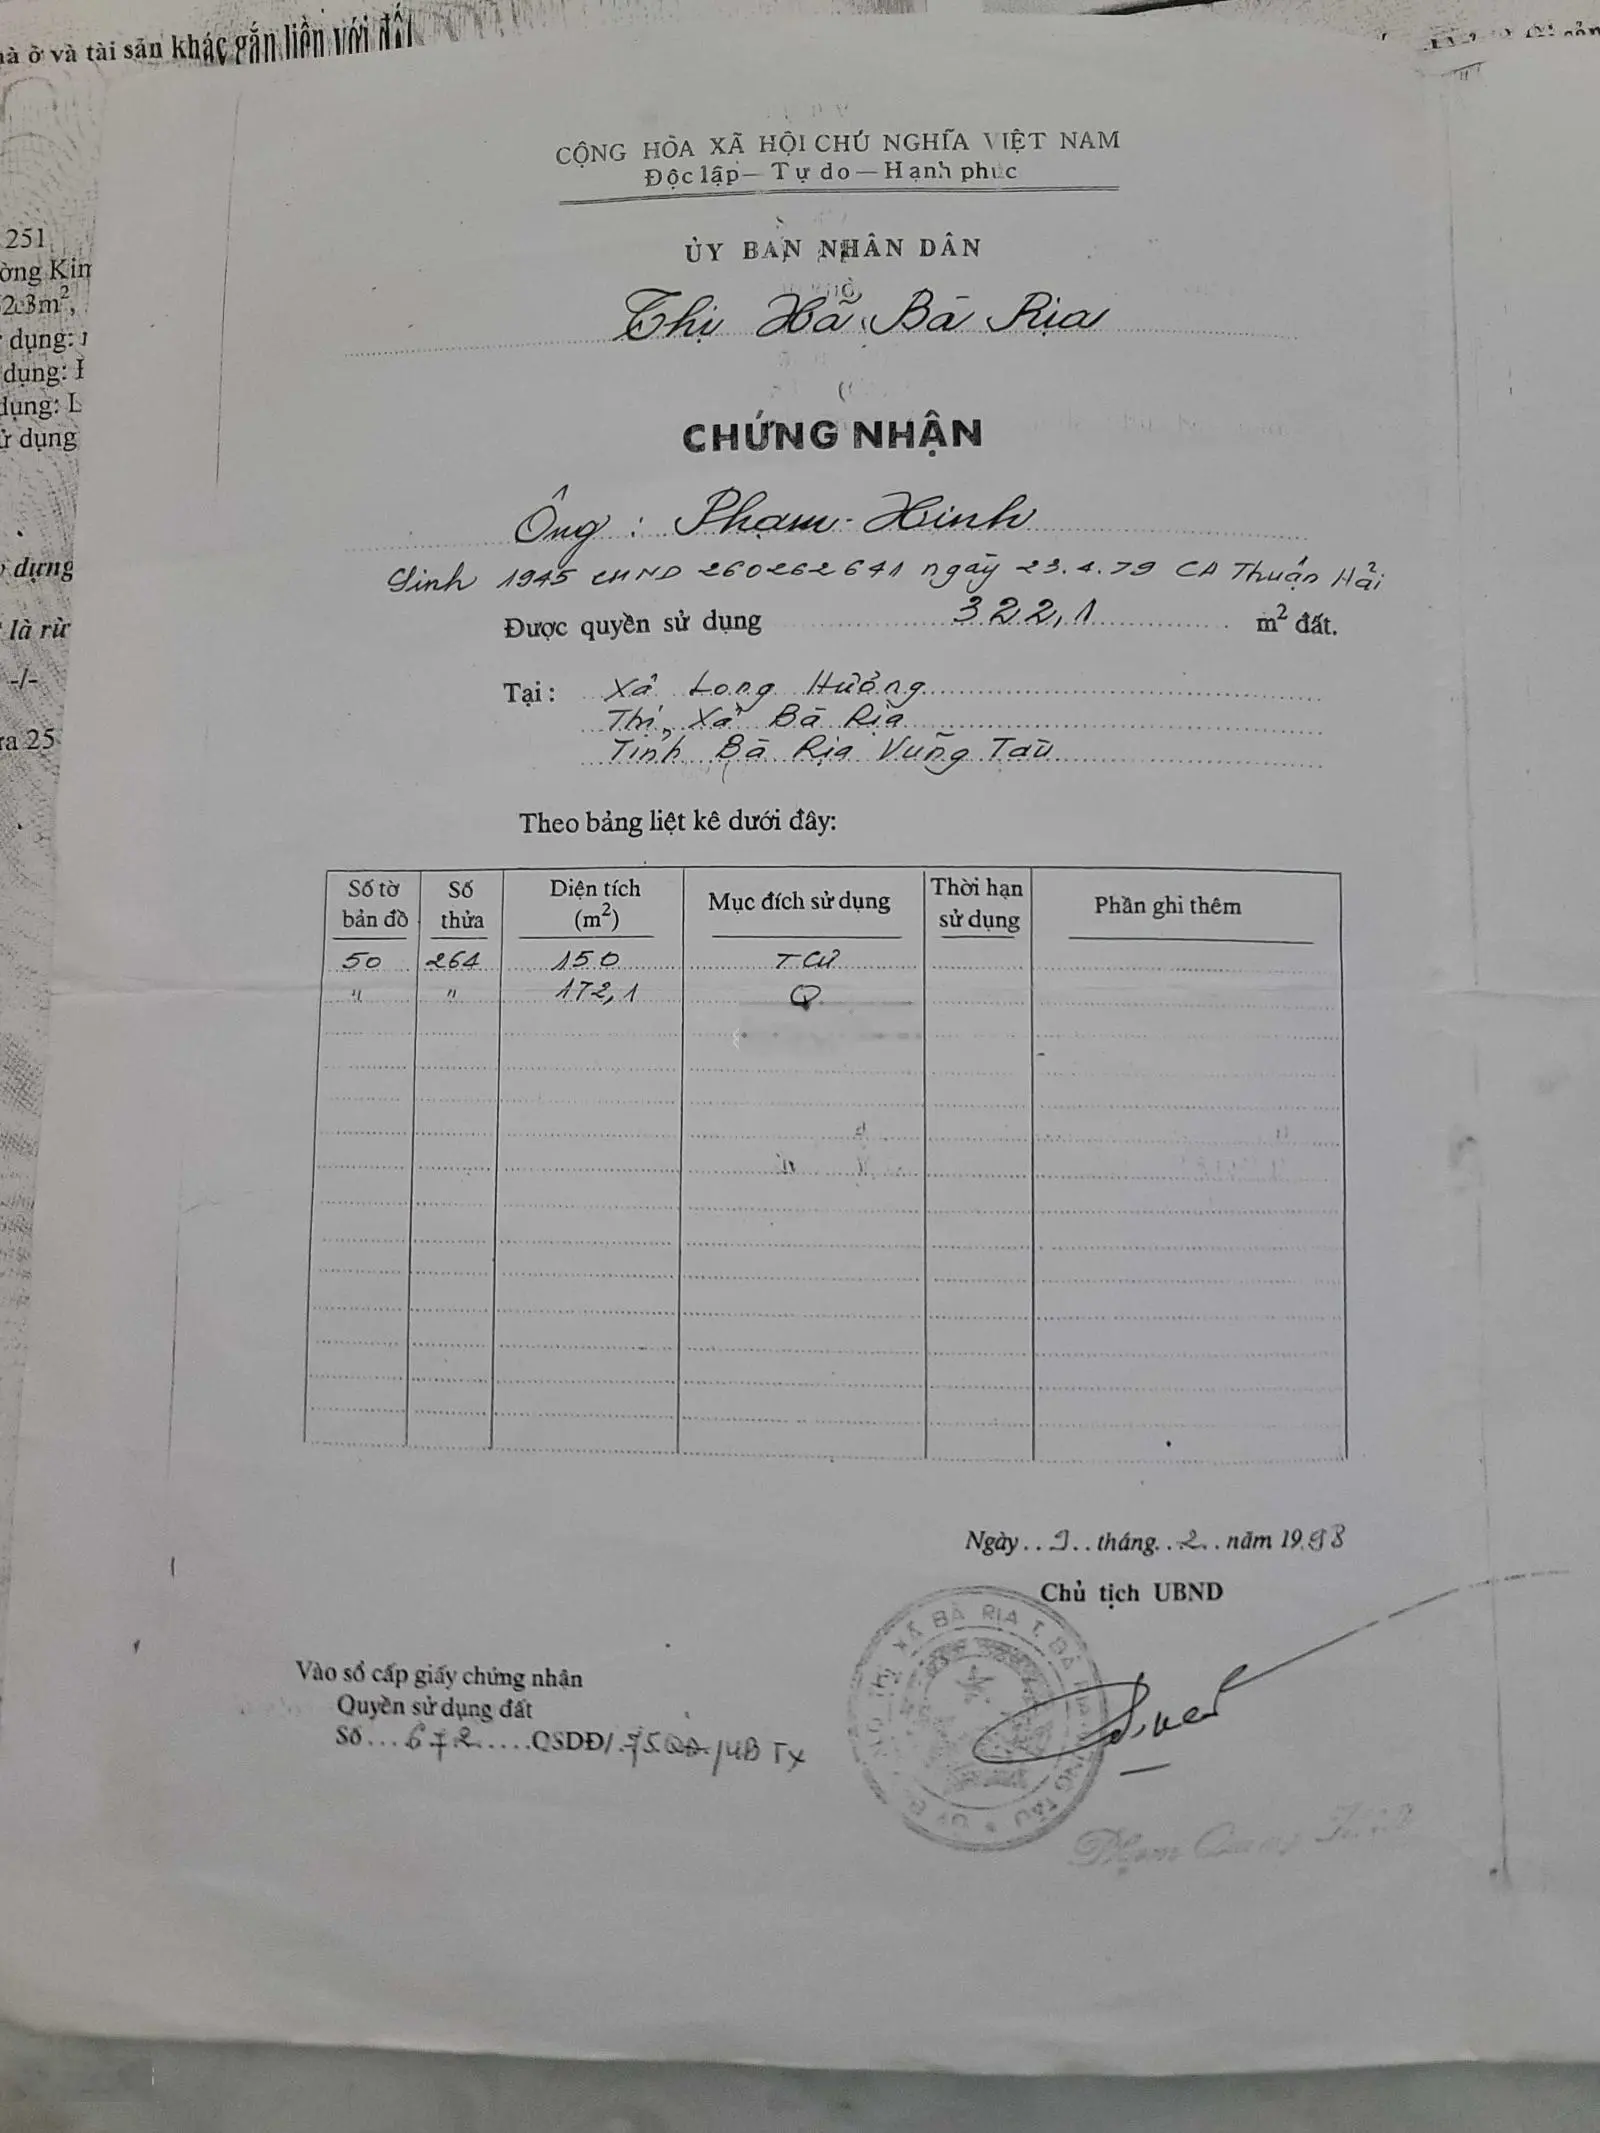 à ở và tài sản khác gắn liền với đất
251
ờng Kim
2.3m²,
dụng:
dụng:
dụng: L
ử dụng
dựng
là rừ
-/-
ra 25
CỘNG HÒA XÃ HỘI CHỦ NGHĨA VIỆT NAM
Độc lập — Tự do — Hạnh phúc
ỦY BAN NHÂN DÂN
Thị Xã Bà Rịa
CHỨNG NHẬN
Ông : Phạm - Hinh
Sinh 1945 CMND 260262641 ngày 23.4.79 CA Thuận Hải
Được quyền sử dụng 322,1 m² đất.
Tại : Xã Long Hương
Thị Xã Bà Rịa
Tỉnh Bà Rịa Vũng Tàu
Theo bảng liệt kê dưới đây:
Số tờ bản đồ Số thửa Diện tích (m²) Mục đích sử dụng Thời hạn sử dụng Phần ghi thêm
50 264 150 T CƯ
" " 172,1 Q
Ngày . . 9 . . tháng . . 2 . . năm 1998
Chủ tịch UBND
Vào sổ cấp giấy chứng nhận
Quyền sử dụng đất
Số . . . 672 . . . . . QSDĐ/ . 75.QĐ/UB Tx
XÃ BÀ RỊA T. BÀ RỊA VŨNG TÀU
Phạm Quang